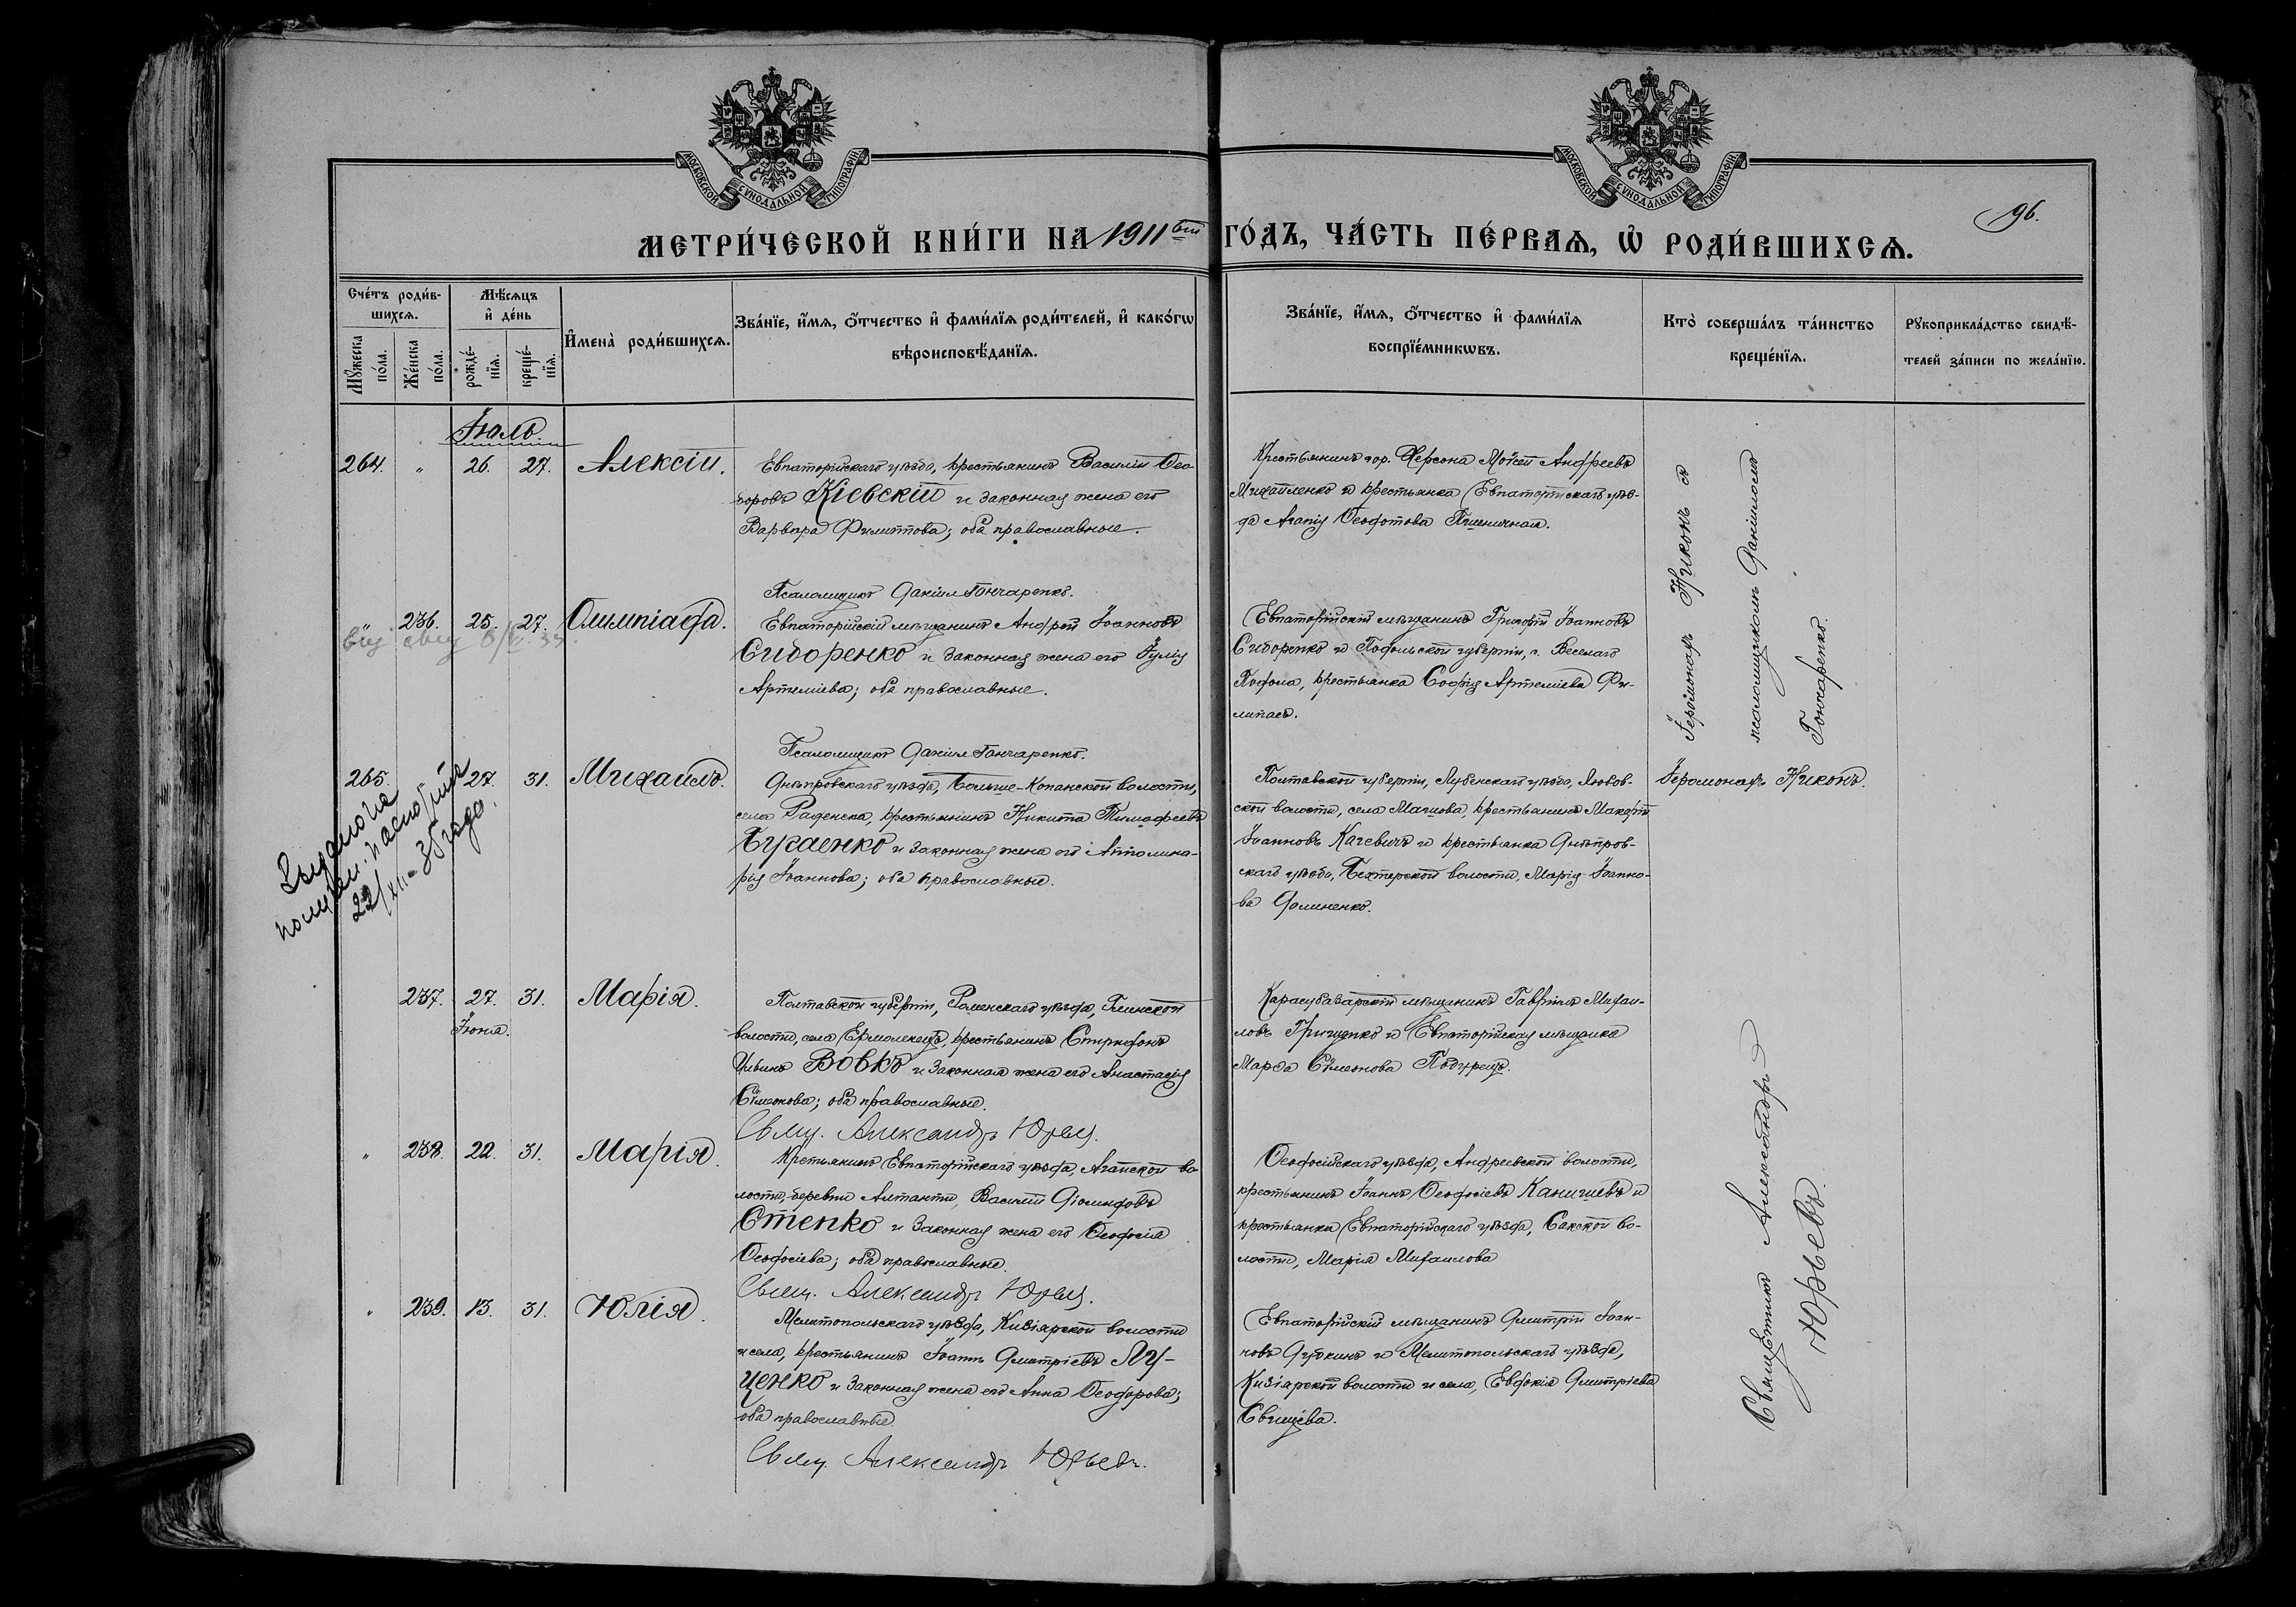 МОСКОВСКОЙ СѴНОДАЛЬНОЙ ТИПОГРАФІИ
МОСКОВСКОЙ СѴНОДАЛЬНОЙ ТИПОГРАФІИ
96.
МЕТРИ́ЧЕСКОЙ КНИ́ГИ НА 1911 ГО́ДЪ, ЧА́СТЬ ПЕ́РВАѦ, Ѡ҆ РОДИ́ВШИХСѦ.
Сче́тъ роди́в-
шихсѧ.
Мꙋ́жеска по́ла.
Же́нска по́ла.
Мѣ́сѧцъ
и҆ де́нь
рожде́-
нїѧ.
креще́-
нїѧ.
И҆мена̀ роди́вшихсѧ.
Зва́нїе, и҆́мѧ, ѻ҆́тчество и҆ фами́лїѧ роди́телей, и҆ како́гѡ
вѣроисповѣ́данїѧ.
Зва́нїе, и҆́мѧ, ѻ҆́тчество и҆ фами́лїѧ
воспрїе́мникѡвъ.
Кто̀ соверша́лъ та́инство
креще́нїѧ.
Рꙋкоприкла́дство свидѣ́-
телей за́писи по жела́нїю.
Іюль.
264. " 26. 27. Алексій.
Евпаторійскаго уѣзда, крестьянинъ Василій Ѳео-
доровъ Кіевскій и законная жена его
Варвара Филиппова; оба православные.
Крестьянинъ гор. Херсона Моѵсей Андреевъ
Михайленко и крестьянка Евпаторійскаго уѣз-
да Агапія Ѳеофотова Пшеничная.
Псаломщикъ Даніилъ Гончаренко.
236. 25. 27. Олимпіада.
Евпаторійскій мѣщанинъ Андрей Іоанновъ
Сидоренко и законная жена его Іулія
Артеміева; оба православные.
Евпаторійскій мѣщанинъ Григорій Іоанновъ
Сидоренко и Подольской губерніи, с. Веселаго
Подола, крестьянка Софія Артеміева Фи-
липась.
Іеромонахъ Никонъ и
псаломщикомъ Даніиломъ
Гончаренко.
Псаломщикъ Даніилъ Гончаренко.
265. 27. 31. Михаилъ.
Днѣпровскаго уѣзда, Больше-Копанской волости,
села Раденска, крестьянинъ Никита Тимофеевъ
Бугаенко и законная жена его Апполина-
рія Іоаннова; оба православные.
Полтавской губерніи, Лубенскаго уѣзда,
ской волости, села крестьянинъ Макарій
Іоанновъ Качевичъ и крестьянка Днѣпров-
скаго уѣзда, Бехтерской волости, Марія Іоанно-
ва Долиненко.
Іеромонахъ Никонъ.
22/XII-35 года.
237. 27. 31. Марія.
Іюня.
Полтавской губерніи, Роменскаго уѣзда, Глинской
волости, села крестьянинъ Спиридонъ
Вовкъ и законная жена его Анастасія
Сѵмеонова; оба православные.
Карасубазарскій мѣщанинъ Гавріилъ Михаи-
ловъ Грищенко и Евпаторійская мѣщанка
Марѳа Сѵмеонова
Свящ. Александръ Юрьев.
" 238. 22. 31. Марія.
Крестьянинъ Евпаторійскаго уѣзда, Агайской во-
лости, деревни Василій Діомидовъ
Стенко и законная жена его Ѳеодосія
Ѳеодосіева; оба православные.
Ѳеодосійскаго уѣзда, Андреевской волости,
крестьянинъ Іоаннъ Ѳеодосіевъ Канищевъ и
крестьянка Евпаторійскаго уѣзда, Сакской во-
лости, Марія Михаилова
Свящ. Александръ Юрьев.
" 239. 13. 31. Юлія.
Мелитопольскаго уѣзда, Кизіярской волости
и села, крестьянинъ Іоаннъ Дмитріевъ Лу-
ценко и законная жена его Анна Ѳеодорова;
оба православные.
Евпаторійскій мѣщанинъ Дмитрій Іоан-
новъ Дубкинъ и Мелитопольскаго уѣзда,
Кизіярской волости и села, Евдокія Дмитріева
Свищева.
Священникъ Александръ
Юрьевъ.
Свящ. Александръ Юрьевъ.